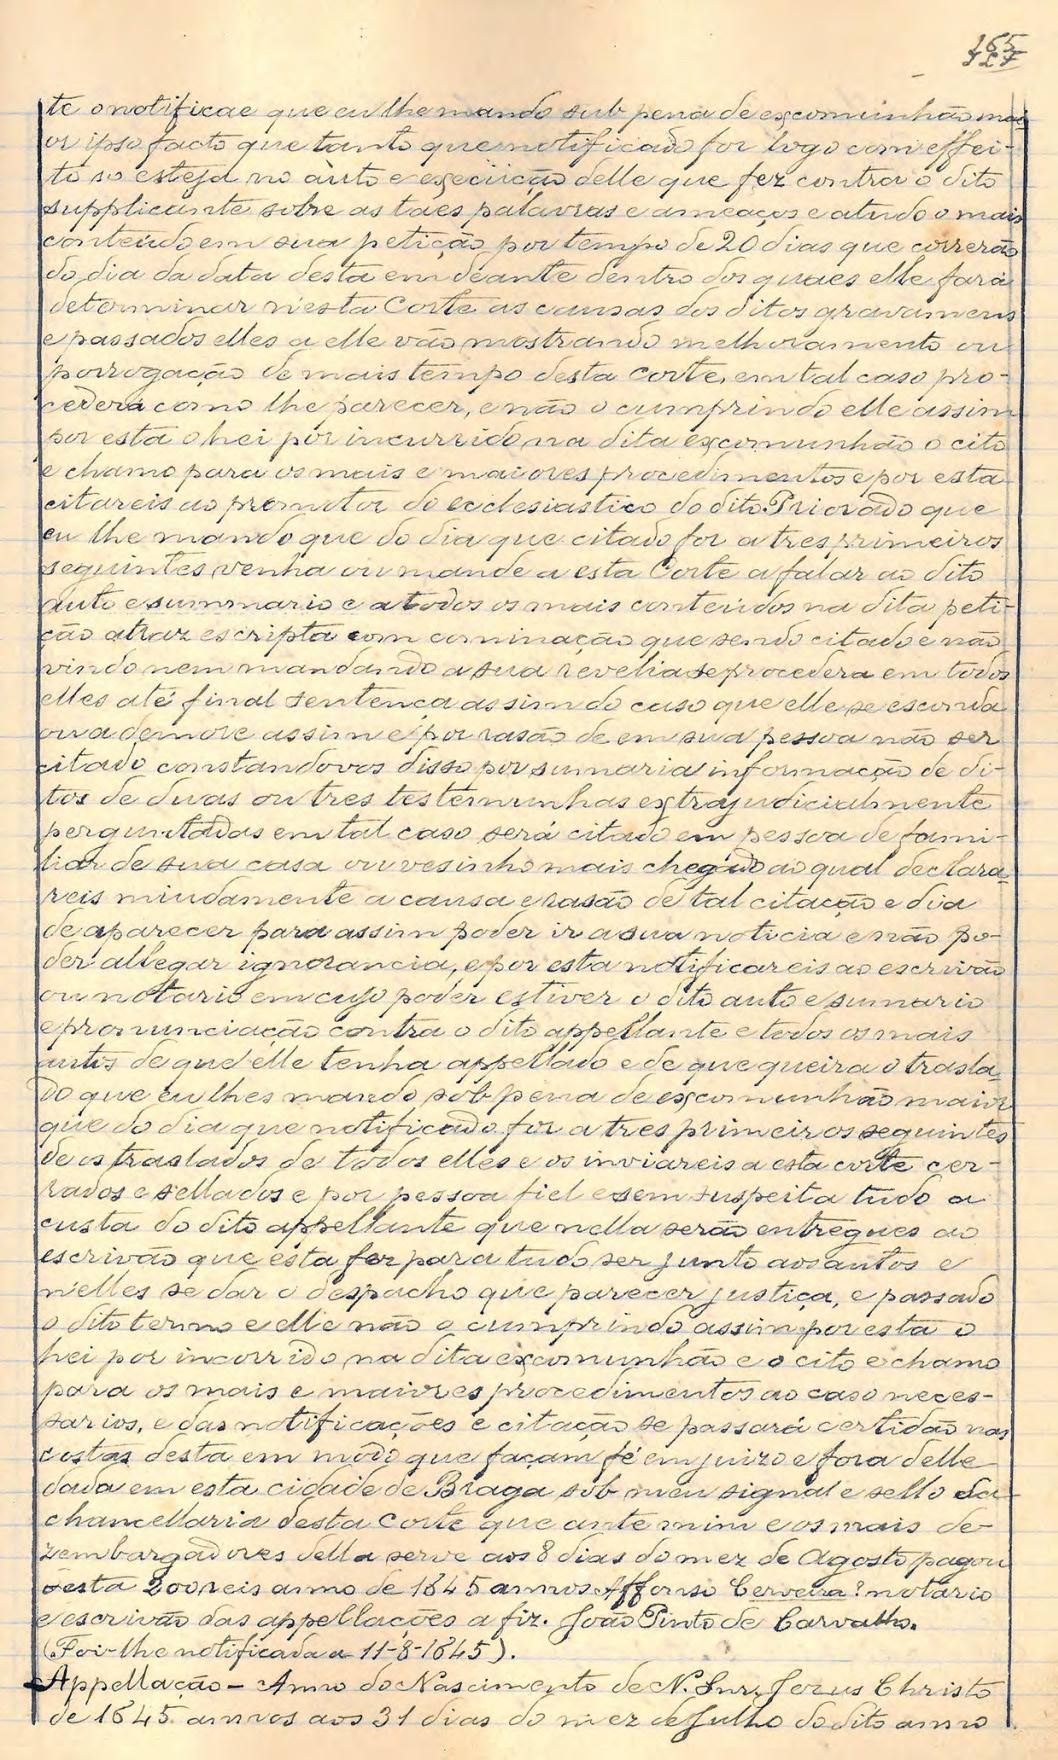 165
127
te o notificae que eu lhe mando sub pena de excomuinhão mai-
or ipso facto que tanto que notificado for logo com effei-
to so esteja no auto e execuição delle que fez contra o dito
supplicante sobre as taes palavras e ameaços e a tudo o mais
conteúdo em sua petição por tempo de 20 dias que correrão
do dia da data desta em deante dentro dos quaes elle fará
determinar n'esta Corte as causas dos ditos gravamens
e passados elles a elle vão mostrando melhoramento ou
porrogação de mais tempo desta corte, em tal caso pro-
cederá como lhe parecer, e não o cumprindo elle assim
por esta o hei por incurrido na dita excomunhão o cito
e chamo para os mais e maiores procedimentos e por esta
citareis ao promotor do ecclesiastico do dito Priorado que
eu lhe mando que do dia que citado for a tres primeiros
seguintes venha ou mande a esta Corte a falar ao dito
auto e summario e a todos os mais conteúdos na dita peti-
ção atraz escripta com cominação que sendo citado e não
vindo nem mandando a sua revelia se procedera em todos
elles até final sentença assim do caso que elle se esconda
ou ademore assim e por rasão de em sua pessoa não ser
citado constandovos disso por sumaria informação de di-
tos de duas ou tres testemunhas extrajudicialmente
perguntadas em tal caso será citado em pessoa de fami-
liar de sua casa ou vesinho mais chegado ao qual declara-
reis miudamente a causa e rasão de tal citação e dia
de aparecer para assim poder ir a sua noticia e não po-
der allegar ignorancia, e por esta notificareis ao escrivão
ou notario em cujo poder estiver o dito auto e sumario
e pronunciação contra o dito appellante e todos os mais
autos de que elle tenha appellado e de que queira o trasla-
do que eu lhes mando sob pena de excomunhão maior
que do dia que notificado for a tres primeiros seguintes
de os traslados de todos elles e os inviareis a esta corte cer-
rados e sellados e por pessoa fiel e sem suspeita tudo a
custa do dito appellante que nella serão entregues ao
escrivão que esta fez para tudo ser junto aos autos e
n'elles se dar o despacho que parecer justiça, e passado
o dito termo e elle não o cumprindo assim por esta o
hei por incorrido na dita excomunhão e o cito e chamo
para os mais e maiores procedimentos ao caso neces-
sarios, e das notificações e citação se passará certidão nas
costas desta em modo que façam fé em juizo e fora delle
dada em esta cidade de Braga sob meu signal e sello da
chancellaria desta Corte que ante mim e os mais de-
zembargadores della serve aos 8 dias do mez de Agosto pagou
desta 200 reis anno de 1645 annos Affonso Cerveira? notario
e escrivão das appellações a fiz. João Pinto de Carvalho.
(Foi-lhe notificada a 11-8-1645).
Appellação - Anno do Nascimento de N. Snr. Jezus Christo
de 1645 annos aos 31 dias do mez de Julho do dito anno